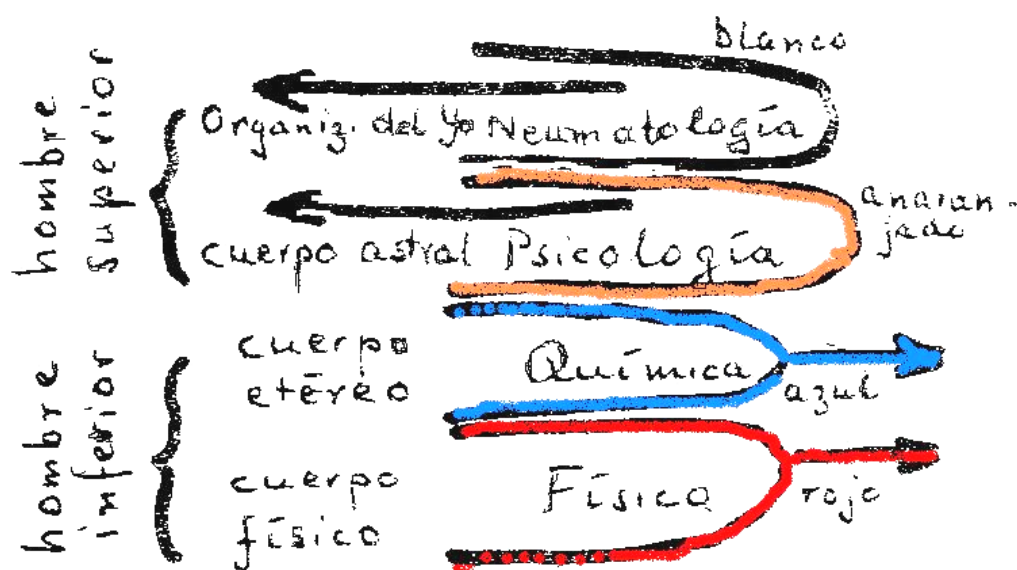 blanco
hombre
superior
Organiz. del Yo Neumatología
anaran-
jado
cuerpo astral Psicología
hombre
inferior
cuerpo
etéreo
Química
azul
cuerpo
físico
Física
rojo